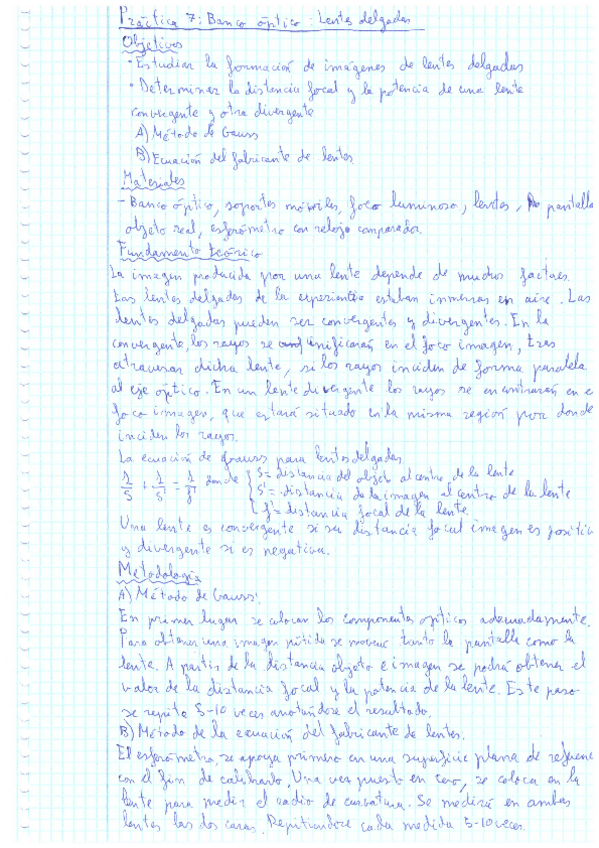 Práctica 7: Banco óptico: Lentes delgadas
Objetivos
· Estudiar la formación de imágenes de lentes delgadas
· Determinar la distancia focal y la potencia de una lente
convergente y otra divergente
A) Método de Gauss
B) Ecuación del fabricante de lentes
Materiales
- Banco óptico, soportes móviles, foco luminoso, lentes, pantalla
objeto real, esferómetro con reloj comparador.
Fundamento teórico
La imagen producida por una lente depende de muchos factores.
Las lentes delgadas de la experiencia estaban inmersas en aire. Las
lentes delgadas pueden ser convergentes y divergentes. En la
convergente, los rayos se unificarán en el foco imagen, tras
atravesar dicha lente, si los rayos inciden de forma paralela
al eje óptico. En un lente divergente los rayos se encontrarán en e
foco imagen, que estará situado en la misma región por donde
inciden los rayos.
La ecuación de Gauss para lentes delgadas
1/S + 1/S' = 1/f' donde { S = distancia del objeto al centro de la lente
S' = distancia de la imagen al centro de la lente
f' = distancia focal de la lente
Una lente es convergente si su distancia focal imagen es positiv
y divergente si es negativa.
Metodología
A) Método de Gauss:
En primer lugar se colocan los componentes ópticos adecuadamente.
Para obtener una imagen nítida se mueve tanto la pantalla como la
lente. A partir de la distancia objeto e imagen se podrá obtener el
valor de la distancia focal y la potencia de la lente. Este paso
se repite 5-10 veces anotándose el resultado.
B) Método de la ecuación del fabricante de lentes.
El esferómetro, se apoya primero en una superficie plana de referenc
con el fin de calibrarlo. Una vez puesto en cero, se coloca en la
lente para medir el radio de curvatura. Se medirá en ambas
lentes las dos caras. Repitiendose cada medida 5-10 veces.